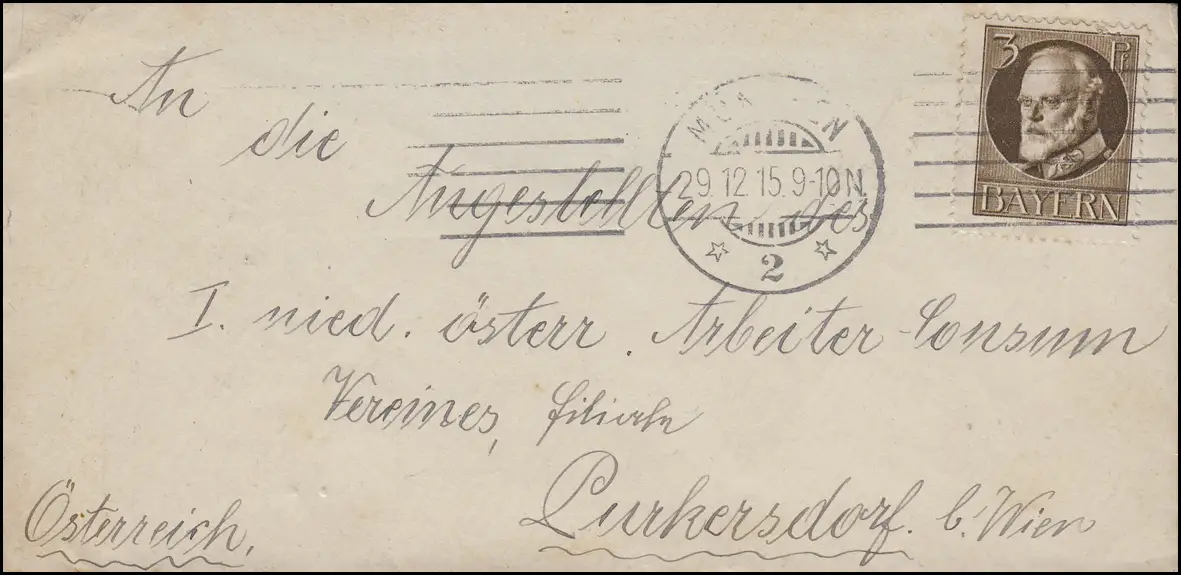 3 Pf
BAYERN
MÜNCHEN
29.12.15.9-10N.
2
An
die
Angestellten des
I. nied. österr. Arbeiter-Consum
Vereines, Filiale
Purkersdorf. b. Wien
Österreich,